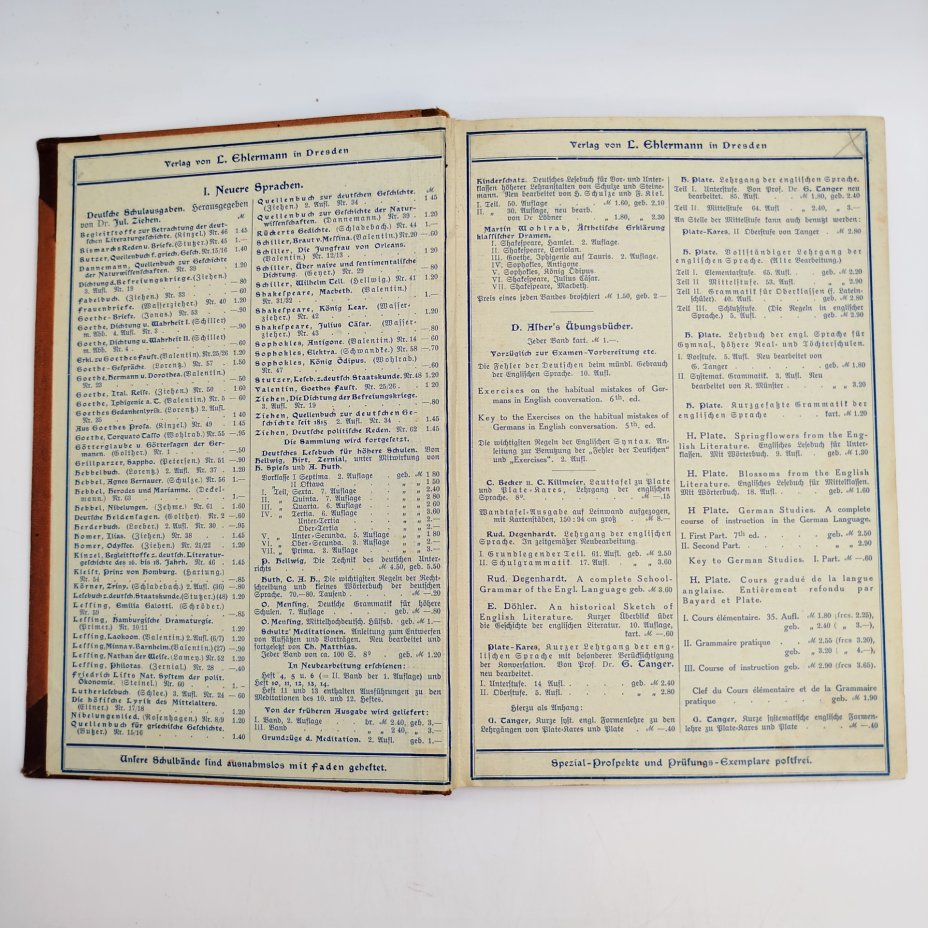 Verlag von L. Ehlermann in Dresden
I. Neuere Sprachen.
Deutsche Schulausgaben. Herausgegeben
von Dr. Jul. Ziehen.
Begleitstoffe zur Betrachtung der deut-
schen Literaturgeschichte. (Kinzel) Nr. 46 1 45
Bismarcks Reden u. Briefe. (Stutzer) Nr. 45 1.—
Butzer, Quellenbuch f. griech. Gesch. Nr. 15/16 1.40
Dannemann, Quellenbuch zur Geschichte
der Naturwissenschaften. Nr. 39 1.20
Dichtung d. Befreiungskriege. (Ziehen)
3. Aufl. Nr. 19 —80
Fabelbuch. (Ziehen) Nr. 33 —60
Frauenbriefe. (Wasserzieher.) Nr. 40 1.20
Goethe-Briefe. (Jonas.) Nr. 53 —.90
Goethe, Dichtung u. Wahrheit I. (Schiller)
m. Abb. 4. Aufl. Nr. 3
Goethe, Dichtung u. Wahrheit II. (Schiller)
m. Abb. Nr. 4 —60
Erkl. zu Goethes Faust. (Valentin.) Nr. 25/26 1.20
Goethe-Gespräche. (Lorentz.) Nr. 57 1.50
Goethe, Hermann u. Dorothea. (Valentin.)
Nr. 23 —50
Goethe, Ital. Reise. (Ziehen.) Nr. 50 1.60
Goethe, Iphigenie a. T. (Valentin) Nr. 5 —60
Goethes Gedankenlyrik. (Lorentz.) 2. Aufl.
Nr. 35 1 40
Aus Goethes Prosa. (Kinzel) Nr. 49 1.45
Goethe, Torquato Tasso (Wohlrab.) Nr. 55 —.95
Götterglaube u Göttersagen der Ger-
manen. (Golther.) Nr. 1 —.50
Grillparzer, Sappho. (Petersen.) Nr. 51 —.90
Hebbelbuch. (Lorentz.) 2. Aufl. Nr. 37 1.20
Hebbel, Agnes Bernauer. (Schulze.) Nr. 56 1.—
Hebbel, Herodes und Mariamne. (Deckel-
mann.) Nr. 63 1.—
Hebbel, Nibelungen. (Zehme.) Nr. 61 1.60
Deutsche Heldensagen. (Golther.) Nr. 2 —60
Herderbuch. (Lorber.) 2. Aufl. Nr. 30 —.95
Homer, Ilias. (Ziehen.) Nr. 38 1.45
Homer, Odyssee. (Ziehen.) Nr. 21/22 1.20
Kinzel, Quellenbuch z. deutsch. Literatur-
geschichte des 16. bis 18. Jahrh. Nr. 46 1.45
Kleist, Prinz von Homburg. (Hartung.)
Nr. 54 —.85
Körner, Zriny. (Schladebach) 2. Aufl. (36) —80
Lesebuch z. deutsch. Staatskunde. (Stutzer.) (48) 1.20
Lessing, Emilia Galotti. (Schröber.)
Nr. 59 —.85
Lessing, Hamburgische Dramaturgie.
(Primer.) Nr. 10/11 1.20
Lessing, Laokoon. (Valentin.) 2. Aufl. (6/7) 1.20
Lessing, Minna v. Barnhelm. (Valentin.) (27) —.90
Lessing, Nathan der Weise. (Lamey.) Nr. 52 1.20
Lessing, Philotas. (Zernial.) Nr. 28 —.40
Friedrich Lists Nat. System der polit.
Ökonomie. (Steinel.) Nr. 60 1.—
Lutherlesebuch. (Schlee.) 3. Aufl. Nr. 24 —60
Die höfische Lyrik des Mittelalters.
(Eitner.) Nr. 17/18 1.20
Nibelungenlied. (Rosenhagen.) Nr. 8/9 1.20
Quellenbuch für griechische Geschichte.
(Butzer.) Nr. 15/16 1.40
Quellenbuch zur deutschen Geschichte.
(Ziehen) 2. Aufl. Nr. 34 1 45
Quellenbuch zur Geschichte der Natur-
wissenschaften. (Dannemann.) Nr. 39 1.20
Rückerts Gedichte. (Schladebach.) Nr. 44 1.—
Schiller, Braut v. Messina. (Valentin.) Nr. 20 —.60
Schiller, Die Jungfrau von Orleans.
(Valentin.) Nr. 12/13 1.20
Schiller, Über naive und sentimentalische
Dichtung. (Geyer.) Nr. 29 —80
Schiller, Wilhelm Tell. (Hellwig.) Nr. 41 1.20
Shakespeare, Macbeth. (Valentin.)
Nr. 31/32 1.—
Shakespeare, König Lear. (Wasser-
zieher.) Nr. 42 1.20
Shakespeare, Julius Cäsar. (Wasser-
zieher.) Nr. 43 —80
Sophokles, Antigone. (Valentin.) Nr. 14 —60
Sophokles, Elektra. (Schwandke.) Nr. 58 —.70
Sophokles, König Ödipus. (Wohlrab.)
Nr. 47 —.60
Stutzer, Leseb. z. deutsch Staatskunde. Nr. 48 1 20
Valentin, Goethes Faust. Nr. 25/26 1.20
Ziehen, Die Dichtung der Befreiungskriege.
3. Aufl. Nr. 19 —.80
Ziehen, Quellenbuch zur deutschen Ge-
schichte seit 1815 2. Aufl. Nr. 34 1.45
Ziehen, Deutsche politische Reden. Nr. 62 1.45
Die Sammlung wird fortgesetzt.
Deutsches Lesebuch für höhere Schulen. Von
Hellwig, Hirt, Zernial, unter Mitwirkung von
H. Spieß und A. Huth.
Vorklasse I Septima. 2. Auflage geb. M 1 80
II Oktava „ „ 1 50
I. Teil, Sexta. 7. Auflage „ „ 2 40
II. „ Quinta. 7. Auflage „ „ 2 80
III. „ Quarta. 6. Auflage „ „ 2 60
IV. „ Tertia. 6. Auflage „ „ 3.60
Unter-Tertia „ „ 2.—
Ober-Tertia „ „ 2.—
V. „ Unter-Secunda. 5. Auflage „ „ 1 80
VI. „ Ober-Secunda. 3. Auflage „ „ 2.—
VII. „ Prima. 3. Auflage „ „ 3.—
P. Hellwig, Die Technik des deutschen Unter-
richts M 4.50, geb. 5.50
Huth, C. A. H., Die wichtigsten Regeln der Recht-
schreibung und kleines Wörterbuch der deutschen
Sprache. 70.—80. Tausend M —.20
O. Mensing, Deutsche Grammatik für höhere
Schulen. 7. Auflage geb. M —.80
O. Mensing, Mittelhochdeutsch. Hülfsb. geb. M 1.—
Schultz' Meditationen. Anleitung zum Entwerfen
von Aufsätzen und Vorträgen. Neu bearbeitet und
fortgesetzt von Th. Matthias.
Jeder Band von ca. 100 S. 8° geb. M 1.20
In Neubearbeitung erschienen:
Heft 4, 5 u. 6 (= II Band der 1. Auflage) und
Heft 10, 11, 12, 13, 14.
Heft 11 und 13 enthalten Ausführungen zu den
Meditationen des 10. und 12. Heftes.
Von der früheren Ausgabe wird geliefert:
I. Band, 2. Auflage br. M 2.40, geb. 3.—
III. Band „ „ 2 40, „ 3.—
Grundzüge d. Meditation. 2. Aufl. geb. 1.—
Unsere Schulbände sind ausnahmslos mit Faden geheftet.
Verlag von L. Ehlermann in Dresden
Kinderschatz. Deutsches Lesebuch für Vor- und Unter-
klassen höherer Lehranstalten von Schulze und Steine-
mann. Neu bearbeitet von H. Schulze und F. Kiel.
I. Teil. 50. Auflage M 1.60, geb. 2.10
II. „ 30. Auflage, neu bearb.
von Dr Löbner „ 1.80, „ 2.30
Martin Wohlrab, Ästhetische Erklärung
klassischer Dramen.
I. Shakespeare, Hamlet. 2. Auflage.
II. Shakespeare, Coriolan.
III. Goethe, Iphigenie auf Tauris. 2. Auflage.
IV. Sophokles, Antigone
V. Sophokles, König Ödipus
VI. Shakespeare, Julius Cäsar.
VII. Shakespeare, Macbeth.
Preis eines jeden Bandes broschiert M 1.50, geb. 2—
D. Asher's Übungsbücher.
Jeder Band kart. M 1.—.
Vorzüglich zur Examen-Vorbereitung etc.
Die Fehler der Deutschen beim mündl. Gebrauch
der Englischen Sprache. 10. Aufl.
Exercises on the habitual mistakes of Ger-
mans in English conversation. 6th. ed.
Key to the Exercises on the habitual mistakes of
Germans in English conversation. 5th ed.
Die wichtigsten Regeln der Englischen Syntax. An-
leitung zur Benutzung der „Fehler der Deutschen“
und „Exercises“. 2. Aufl.
C. Becker u. C. Killmeier, Lauttafel zu Plate
und Plate-Kares, Lehrgang der englischen
Sprache. 8°. M —.15
Wandtafel-Ausgabe auf Leinwand aufgezogen,
mit Kartenstäben, 150:94 cm groß M 8.—
Rud. Degenhardt. Lehrgang der englischen
Sprache. In zeitgemäßer Neubearbeitung.
I Grundlegender Teil. 61. Aufl. geb. M 2.50
II Schulgrammatik. 17. Aufl. „ „ 3.60
Rud. Degenhardt. A complete School-
Grammar of the Engl. Language geb. M 3.60
E. Döhler. An historical Sketch of
English Literature. Kurzer Überblick über
die Geschichte der englischen Literatur. 10. Auflage,
kart. M —60
Plate-Kares, Kurzer Lehrgang der eng-
lischen Sprache mit besonderer Berücksichtigung
der Konversation. Von Prof. Dr. G. Tanger.
neu bearbeitet.
I. Unterstufe. 14 Aufl. geb. M 2.40
II. Oberstufe. 5. Aufl. „ „ 2.80
Hierzu als Anhang:
G. Tanger, Kurze syst. engl. Formenlehre zu den
Lehrgängen von Plate-Kares und Plate M —.40
H. Plate. Lehrgang der englischen Sprache.
Teil I. Unterstufe. Von Prof. Dr G. Tanger neu
bearbeitet. 85. Aufl. M 1.80, geb. 2.40
Teil II. Mittelstufe 64. Aufl. „ 2.40, „ 3.—
An Stelle der Mittelstufe kann auch benutzt werden:
Plate-Kares, II Oberstufe von Tanger M 2.80
H. Plate. Vollständiger Lehrgang der
englischen Sprache. (Alte Bearbeitung.)
Teil I. Elementarstufe. 65. Aufl. geb. M 2.20
Teil II. Mittelstufe. 53. Aufl. „ „ 2.90
Teil II. Grammatik für Oberklassen (f. Latein-
schüler). 40. Aufl. geb. M 2.80
Teil III. Schlußstufe. (Die Regeln in englischer
Sprache.) 5. Aufl. geb. M 2.20
H. Plate. Lehrbuch der engl. Sprache für
Gymnas., höhere Real- und Töchterschulen.
I. Vorstufe. 5. Aufl. Neu bearbeitet von
G. Tanger geb. M 1.80
II Systemat. Grammatik. 3. Aufl. Neu
bearbeitet von K. Münster „ „ 3.20
H. Plate. Kurzgefaßte Grammatik der
englischen Sprache kart. M 1.20
H. Plate. Springflowers from the Eng-
lish Literature. Englisches Lesebuch für Unter-
klassen. Mit Wörterbuch. 9. Aufl. geb. M 1.30
H. Plate. Blossoms from the English
Literature. Englisches Lesebuch für Mittelklassen.
Mit Wörterbuch. 18. Aufl. geb. M 1.60
H Plate. German Studies. A complete
course of instruction in the German Language.
I First Part. 7th ed. geb. M 2.50
II Second Part. „ „ 2.—
Key to German Studies. I. Part. M —.60
H. Plate. Cours gradué de la langue
anglaise. Entièrement refondu par
Bayard et Plate.
I. Cours élémentaire. 35. Aufl. M 1.80 (frcs 2.25),
geb. „ 2.40 ( „ 3.—),
II. Grammaire pratique M 2.55 (frcs 3.20),
geb. „ 3.20 ( „ 4.—),
III. Course of instruction geb. M 2.90 (frcs 3.65).
Clef du Cours élémentaire et de la Grammaire
pratique geb. M 1.90
G. Tanger, Kurze systematische englische Formen-
lehre zu Plate-Kares und Plate M —.40
Spezial-Prospekte und Prüfungs-Exemplare postfrei.